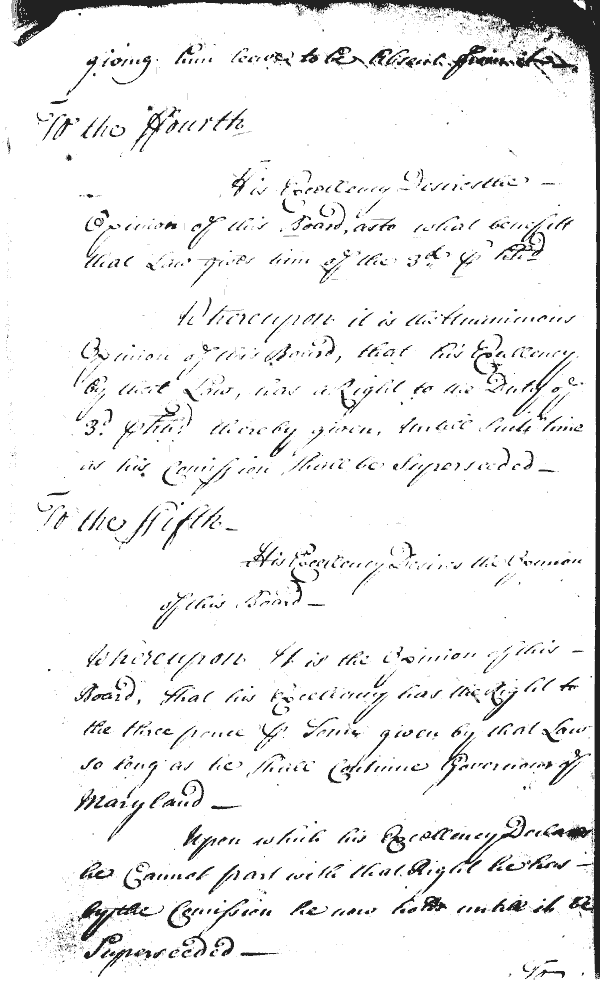 giving him leave to be Absent from it
To the ffourth
His Excellency Desires the
Opinion of this Board, as to what benefitt
that Law gives him of the 3d. p hhd
Whereupon it is the Unanimous
Opinion of this Board, that his Excellency
by that Law, has a Right to the Duty of
3d. p hhd thereby given, Untill Such time
as his Comission Shall be Superseeded —
To the ffifth —
His Excellency Desires the Opinion
of this Board —
Whereupon It is the Opinion of this —
Board, that his Excellency has the Right to
the three pence p Tonn given by that Law
so long as he Shall Continue Governour of
Maryland —
Upon which his Excellency Declares
he Cannot part with that Right he has —
by the Comission he now holds untill it be
Superseeded —